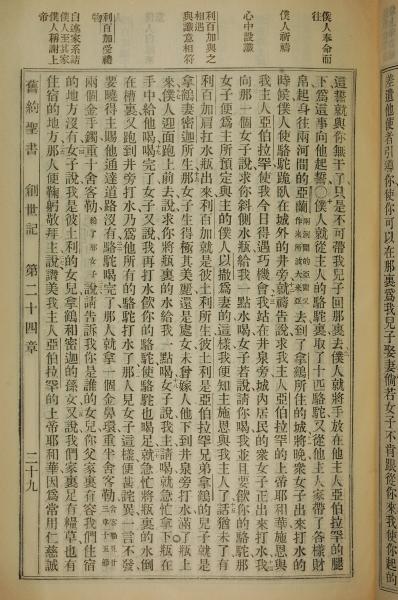 差遣他使者引導你使你可以在那裏爲我兒子娶妻倘若女子不肯跟從你來我使你起的
僕人奉命而往
僕人祈禱
心中設讖
利百加與之相遇
與讖意相符
利百加受禮物
白述家系請僕人至其家
僕人稱謝上帝
這誓就與你無干了只是不可帶我兒子回那裏去僕人就將手放在他主人亞伯拉罕的腿
下爲這事向他起誓○僕人就從主人的駱駝裏取了十匹駱駝又從他主人家帶了各樣財
帛起身往兩河間的亞蘭去到了拿鶴所住的城將晚衆女子出來打水的
時候僕人使駱駝跪臥在城外的井旁就禱告說求我主人亞伯拉罕的上帝耶和華施恩與
我主人亞伯拉罕使我今日得遇巧機會我站在井泉旁城內居民的衆女子正出來打水我
向那一個女子說求你斜側水瓶給我一點水喝女子若說請你喝我並且要飲你的駱駝那
女子便爲主所預定與主的僕人以撒爲妻的這樣我便知主施恩與我主人了話猶未了有
利百加肩扛水瓶出來利百加就是彼土利所生彼土利是亞伯拉罕兄弟拿鶴的兒子就是
拿鶴妻密迦所生那女子生得極其美麗還是處女未曾嫁人他下到井泉旁打水滿了瓶上
來僕人迎面跑上前去說求你將瓶裏的水給我一點喝女子說我主請喝就急忙拿下瓶在
手中給他喝了女子又說我再打水飲你的駱駝使駱駝也喝足就急忙將瓶裏的水倒
在槽裏又跑到井旁打水乃爲他所有的駱駝打水了那人見女子這樣便甚詫異一言不發
要曉得主賜他通達道路沒有駱駝喝完了那人就拿一個金鼻環重半舍客勒
兩個金手鐲重十舍客勒給了那女子說請告訴我你是誰的女兒你父家裏有容我們住宿
的地方沒有女子說我是彼土利的女兒拿鶴和密迦的孫女又說我們家裏足有糧草也有
住宿的地方那人便鞠躬敬拜主說讚美我主人亞伯拉罕的上帝耶和華因爲常用仁慈誠
舊約聖書 創世記 第二十四章 二十九